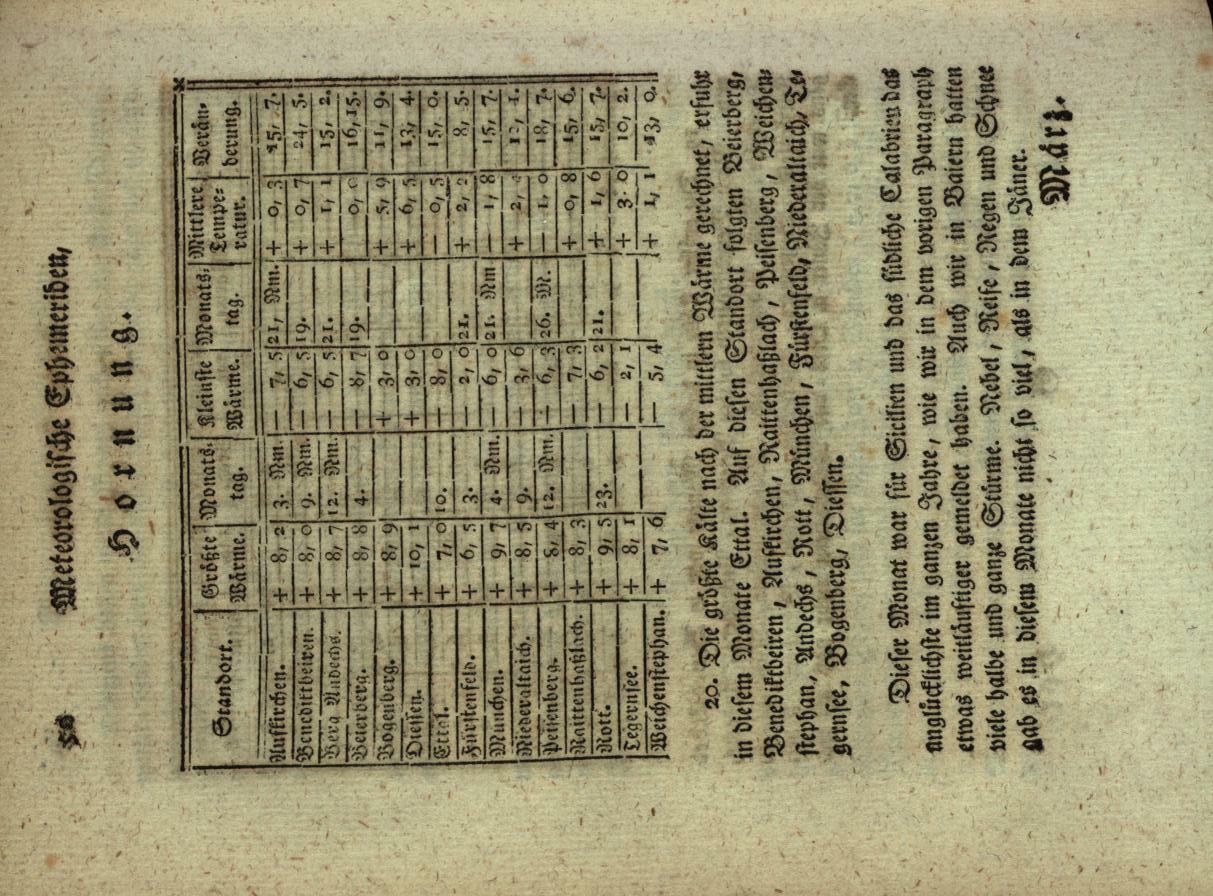 Meteorologische Ephemeriden,
Hornung.
Standort. Größte Wärme. Monats-tag. Kleinste Wärme. Monats-tag. Mittlere Tempe-ratur. Verän-derung.
Aufkirchen. + 8, 2 3. Nm. — 7, 5 21, Nm. + 0, 3 15, 7.
Benediktbeiren. + 8, 0 9. Nm. — 6, 5 19. + 0, 7 24, 5.
Berg Andechs. + 8, 7 12. Nm. — 6, 5 21. + 1, 1 15, 2.
Beierberg. + 8, 8 4. — 8, 7 19. 0, 0 16, 15.
Bogenberg. + 8, 9 + 3, 0 — + 5, 9 11, 9.
Diessen. + 10, 1 + 3, 0 — + 6, 5 13, 4.
Ettal. + 7, 0 10. — 8, 0 — — 0, 5 15, 0.
Fürstenfeld. + 6, 5 3. — 2, 0 21. + 2, 2 8, 5.
München. + 9, 7 4. Nm. — 6, 0 21. Nm — 1, 8 15, 7.
Niederaltaich. + 8, 5 9. — 3, 6 + 2, 12, 1.
Peisenberg. + 8, 4 12. Nm. — 6, 3 26. M. — 1, 0 18, 7.
Raittenhaßlach. + 8, 3 — 7, 3 + 0, 8 15, 6.
Rott. + 9, 5 23. — 6, 2 21. + 1, 6 15, 7.
Tegernsee. + 8, 1 — 2, 1 + 3. 0 10, 2.
Weichenstephan. + 7, 6 — 5, 4 + 1, 1 13, 0.
20. Die größte Kälte nach der mittlern Wärme gerechnet, erfuhr
in diesem Monate Ettal. Auf diesen Standort folgten Beierberg,
Benediktbeiren, Aufkirchen, Raittenhaßlach, Peisenberg, Weichen-
stephan, Andechs, Rott, München, Fürstenfeld, Niederaltaich, Te-
gernsee, Bogenberg, Diessen.
Dieser Monat war für Sicilien und das südliche Calabrien das
unglücklichste im ganzen Jahre, wie wir in dem vorigen Paragraph
etwas weitläuftiger gemeldet haben. Auch wir in Baiern hatten
viele halbe und ganze Stürme. Nebel, Reife, Regen und Schnee
gab es in diesem Monate nicht so viel, als in dem Jäner.
März.